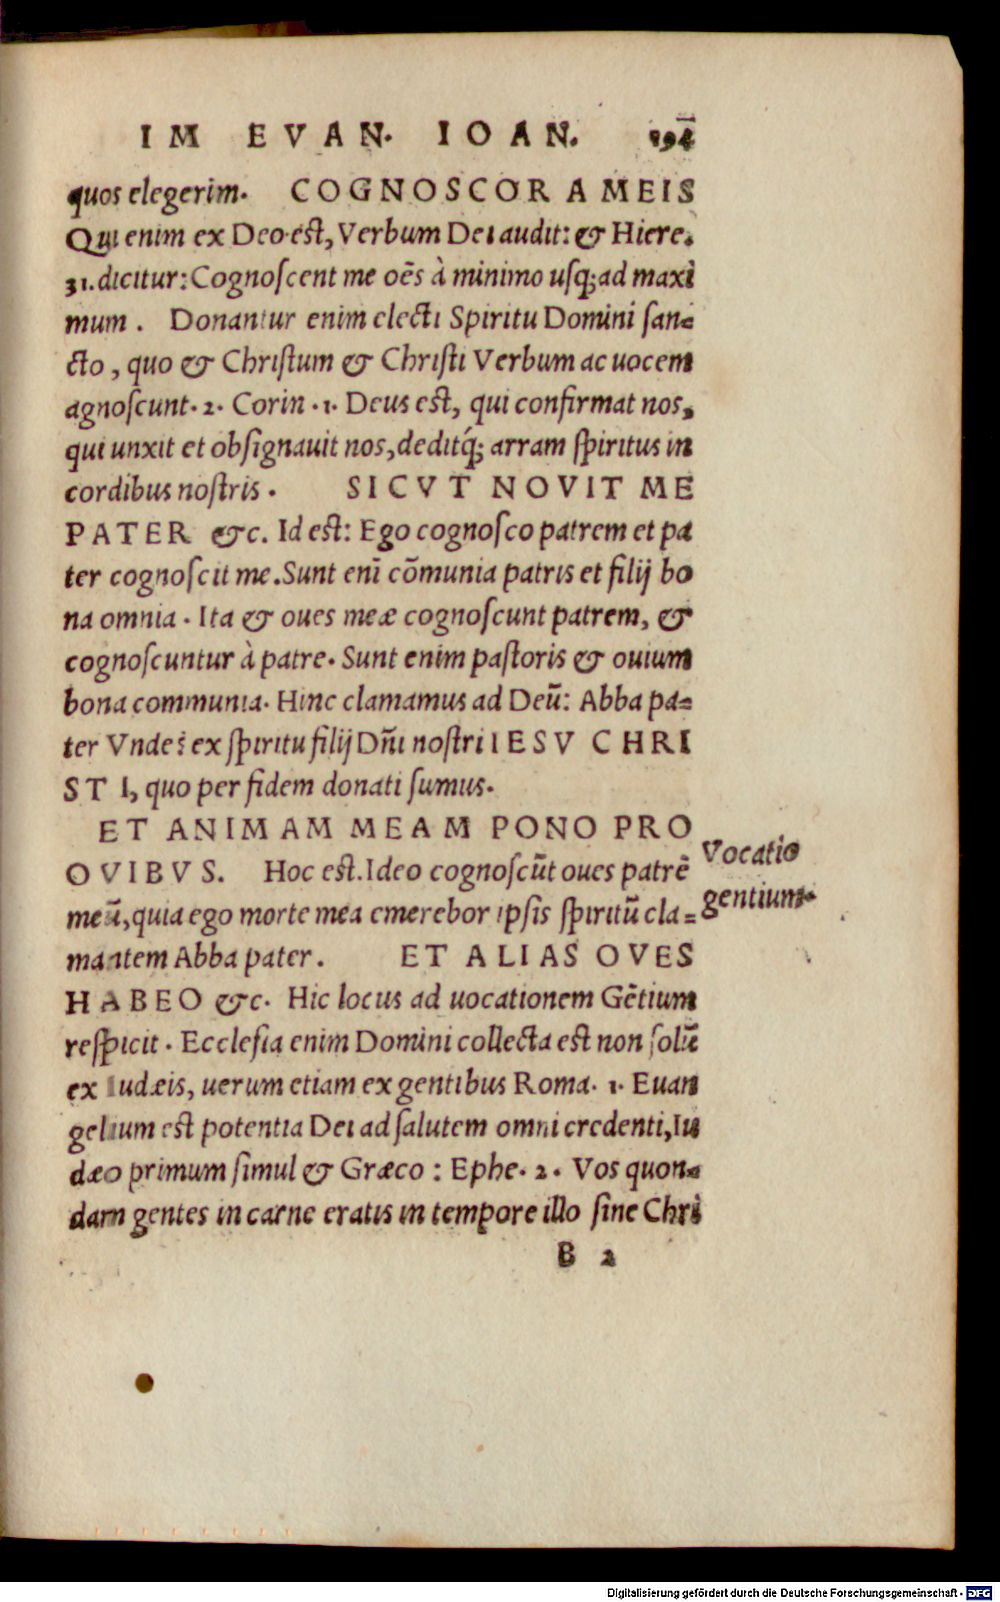 IM EVAN. IOAN. 194
quos elegerim. COGNOSCOR A MEIS
Qui enim ex Deo est, Verbum Dei audit: & Hiere.
31. dicitur: Cognoſcent me oēs à minimo uſq; ad maxi
mum. Donantur enim electi Spiritu Domini ſan-
cto, quo & Chriſtum & Chriſti Verbum ac uocem
agnoſcunt. 2. Corin. 1. Deus est, qui confirmat nos,
qui unxit et obſignauit nos, deditq́; arram ſpiritus in
cordibus noſtris. SICVT NOVIT ME
PATER &c. Id est: Ego cognoſco patrem et pa
ter cognoſcit me. Sunt enī cōmunia patris et filij bo
na omnia. Ita & oues meæ cognoſcunt patrem, &
cognoſcuntur à patre. Sunt enim paſtoris & ouium
bona communia. Hinc clamamus ad Deū: Abba pa-
ter Vnde? ex ſpiritu filij Dñi noſtri IESV CHRI
STI, quo per fidem donati ſumus.
ET ANIMAM MEAM PONO PRO
OVIBVS. Hoc est. Ideo cognoſcūt oues patrē
meū, quia ego morte mea emerebor ipſis ſpiritū cla-
mantem Abba pater. ET ALIAS OVES
HABEO &c. Hic locus ad uocationem Gētium
reſpicit. Eccleſia enim Domini collecta est non ſolū
ex Iudæis, uerum etiam ex gentibus Roma. 1. Euan
gelium est potentia Dei ad ſalutem omni credenti, Iu
dæo primum ſimul & Græco: Ephe. 2. Vos quon-
dam gentes in carne eratis in tempore illo ſine Chri
Vocatio
gentium.
B 2
Digitalisierung gefördert durch die Deutsche Forschungsgemeinschaft - DFG